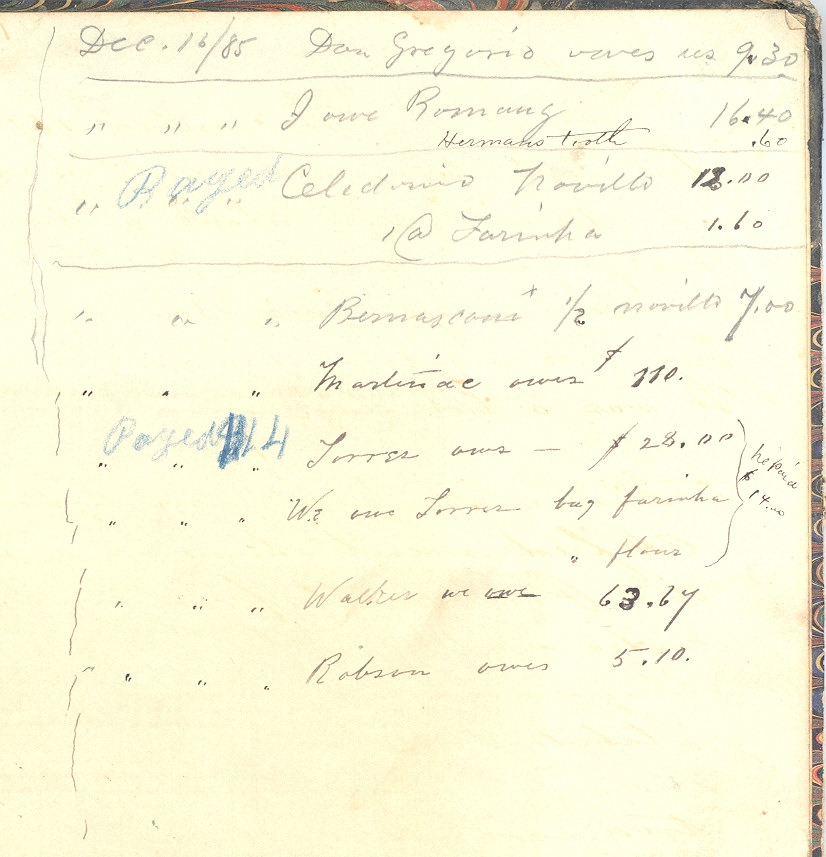 Dec. 16/85 Don Gregorio owes us 9.30
" " " I owe Romang 16.40
Hermans tooth .60
" " " Payed Celedonio Novillo 18.00
1 @ Farinha 1.60
" " " Bernasconi 1/2 novillo 7.00
" " " owes $ 110.
Payed $14
" " " Torres owes — $ 28.00
he paid $ 14.00
" " " We owe Torres bag farinha
" flour
" " " Walker we owe 63.67
" " " Robson owes 5.10.